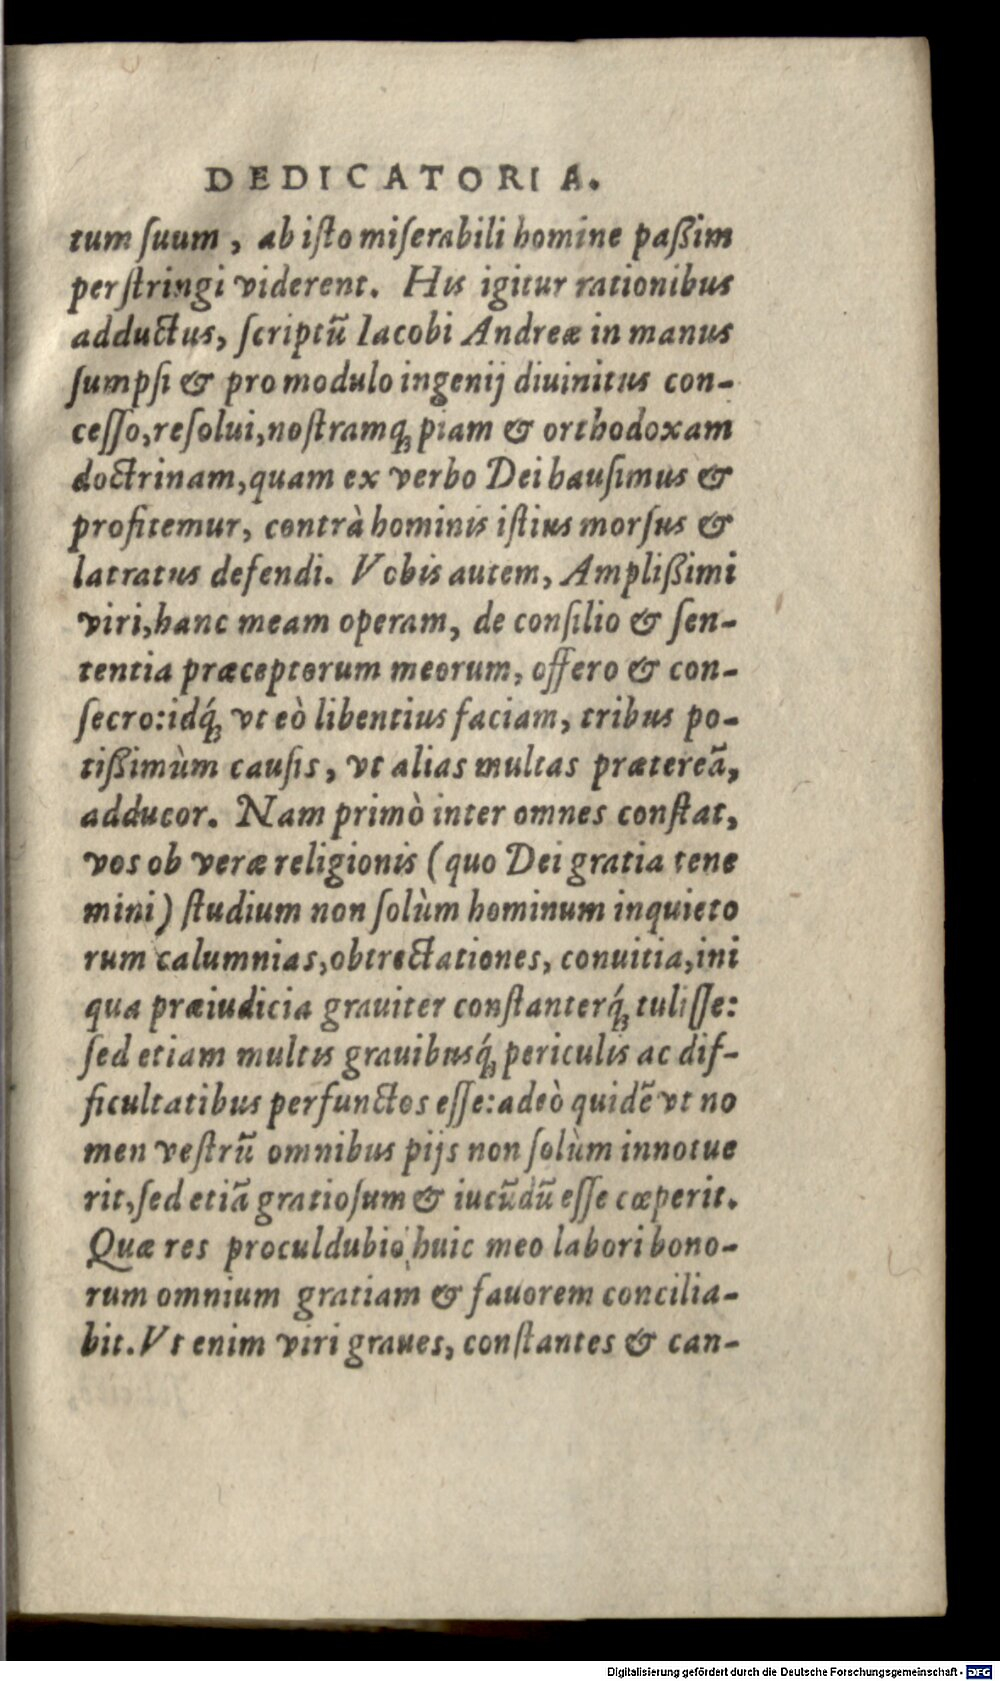 DEDICATORIA.
tum ſuum, ab iſto miſerabili homine paßim
perſtringi viderent. His igitur rationibus
adductus, ſcriptũ Iacobi Andreæ in manus
ſumpſi & pro modulo ingenij diuinitus con-
ceſſo, reſolui, noſtramq́; piam & orthodoxam
doctrinam, quam ex verbo Dei hauſimus &
profitemur, contrà hominis iſtius morſus &
latratus defendi. Vobis autem, Amplißimi
viri, hanc meam operam, de conſilio & ſen-
tentia præceptorum meorum, offero & con-
ſecro: idq́; vt eò libentius faciam, tribus po-
tißimùm cauſis, vt alias multas prætereã,
adducor. Nam primò inter omnes conſtat,
vos ob veræ religionis (quo Dei gratia tene
mini) ſtudium non ſolùm hominum inquieto
rum calumnias, obtrectationes, conuitia, ini
qua præiudicia grauiter conſtanterq́; tuliſſe:
ſed etiam multis grauibusq́; periculis ac dif-
ficultatibus perfunctos eſſe: adeò quidẽ vt no
men veſtrũ omnibus pijs non ſolùm innotue
rit, ſed etiã gratioſum & iucũdũ eſſe cœperit.
Quæ res proculdubio huic meo labori bono-
rum omnium gratiam & fauorem concilia-
bit. Vt enim viri graues, conſtantes & can-
Digitalisierung gefördert durch die Deutsche Forschungsgemeinschaft - DFG